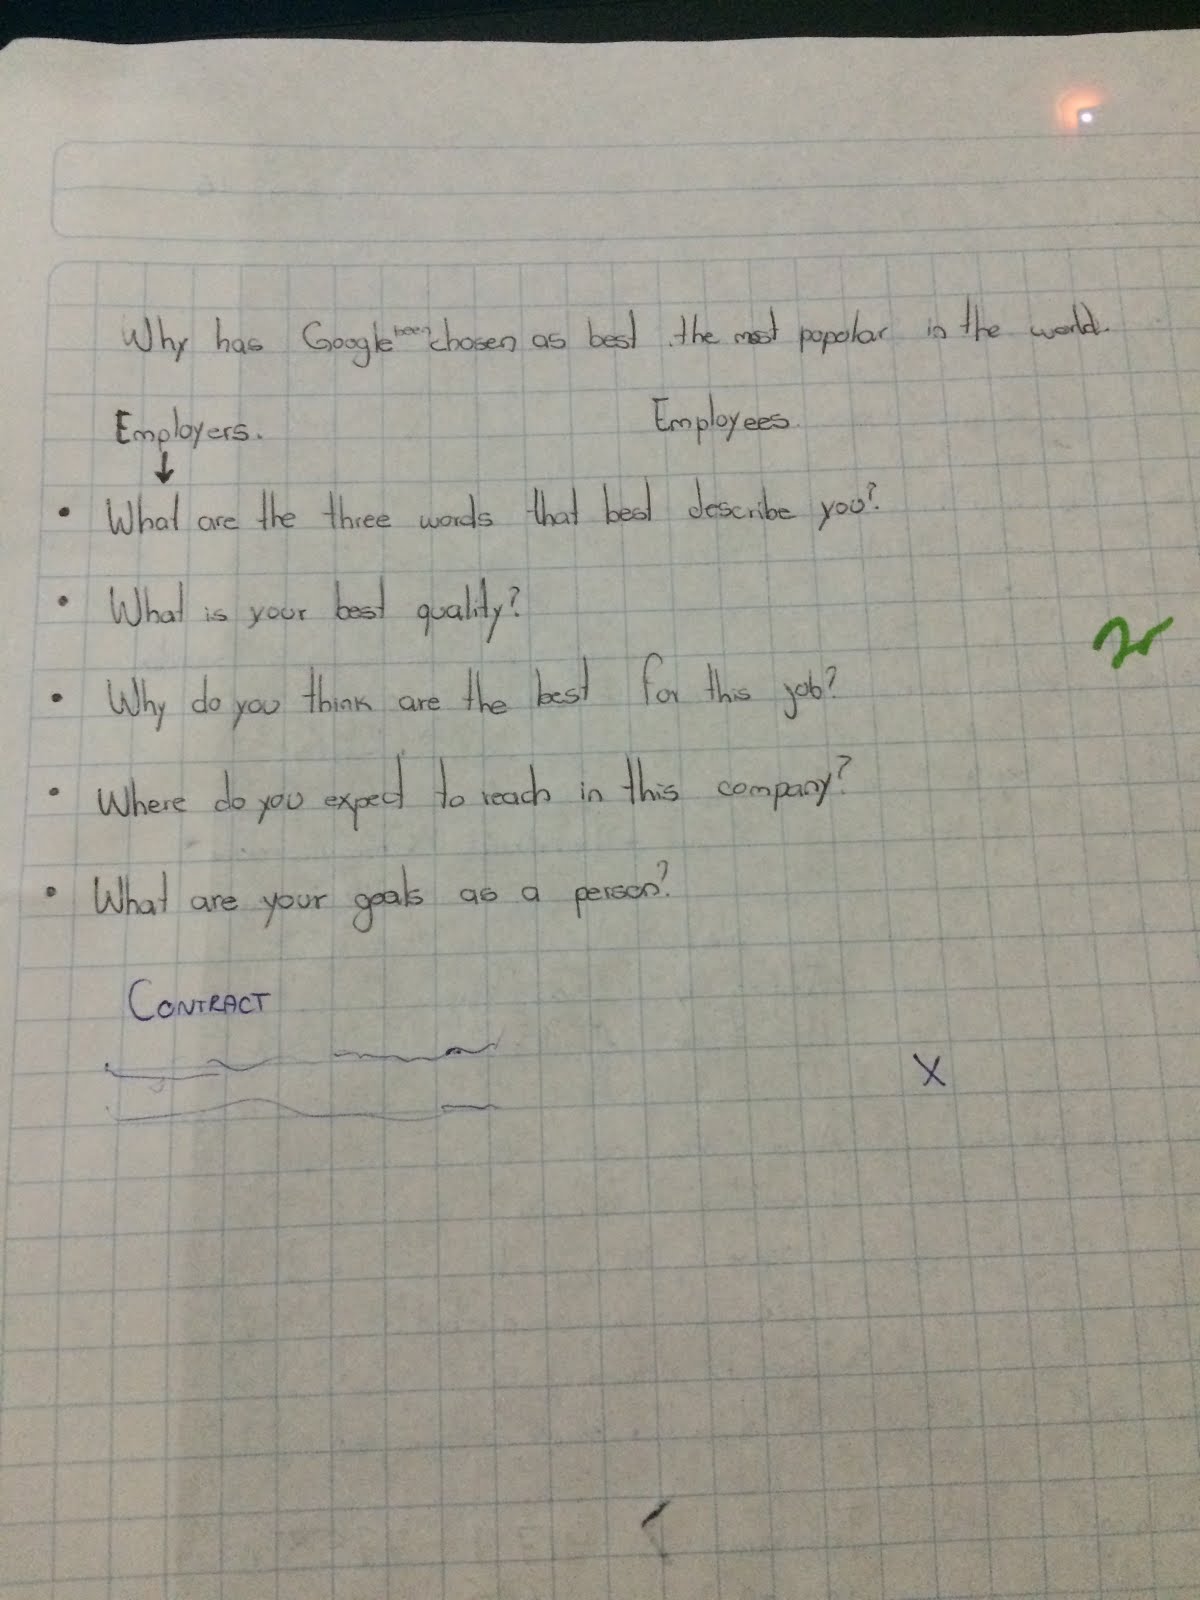 Why has Google been chosen as best the most popolar in the world.
Employers. Employees.
What are the three words that best describe you?
What is your best quality?
Why do you think are the best for this job?
Where do you expect to reach in this company?
What are your goals as a person?
CONTRACT
X